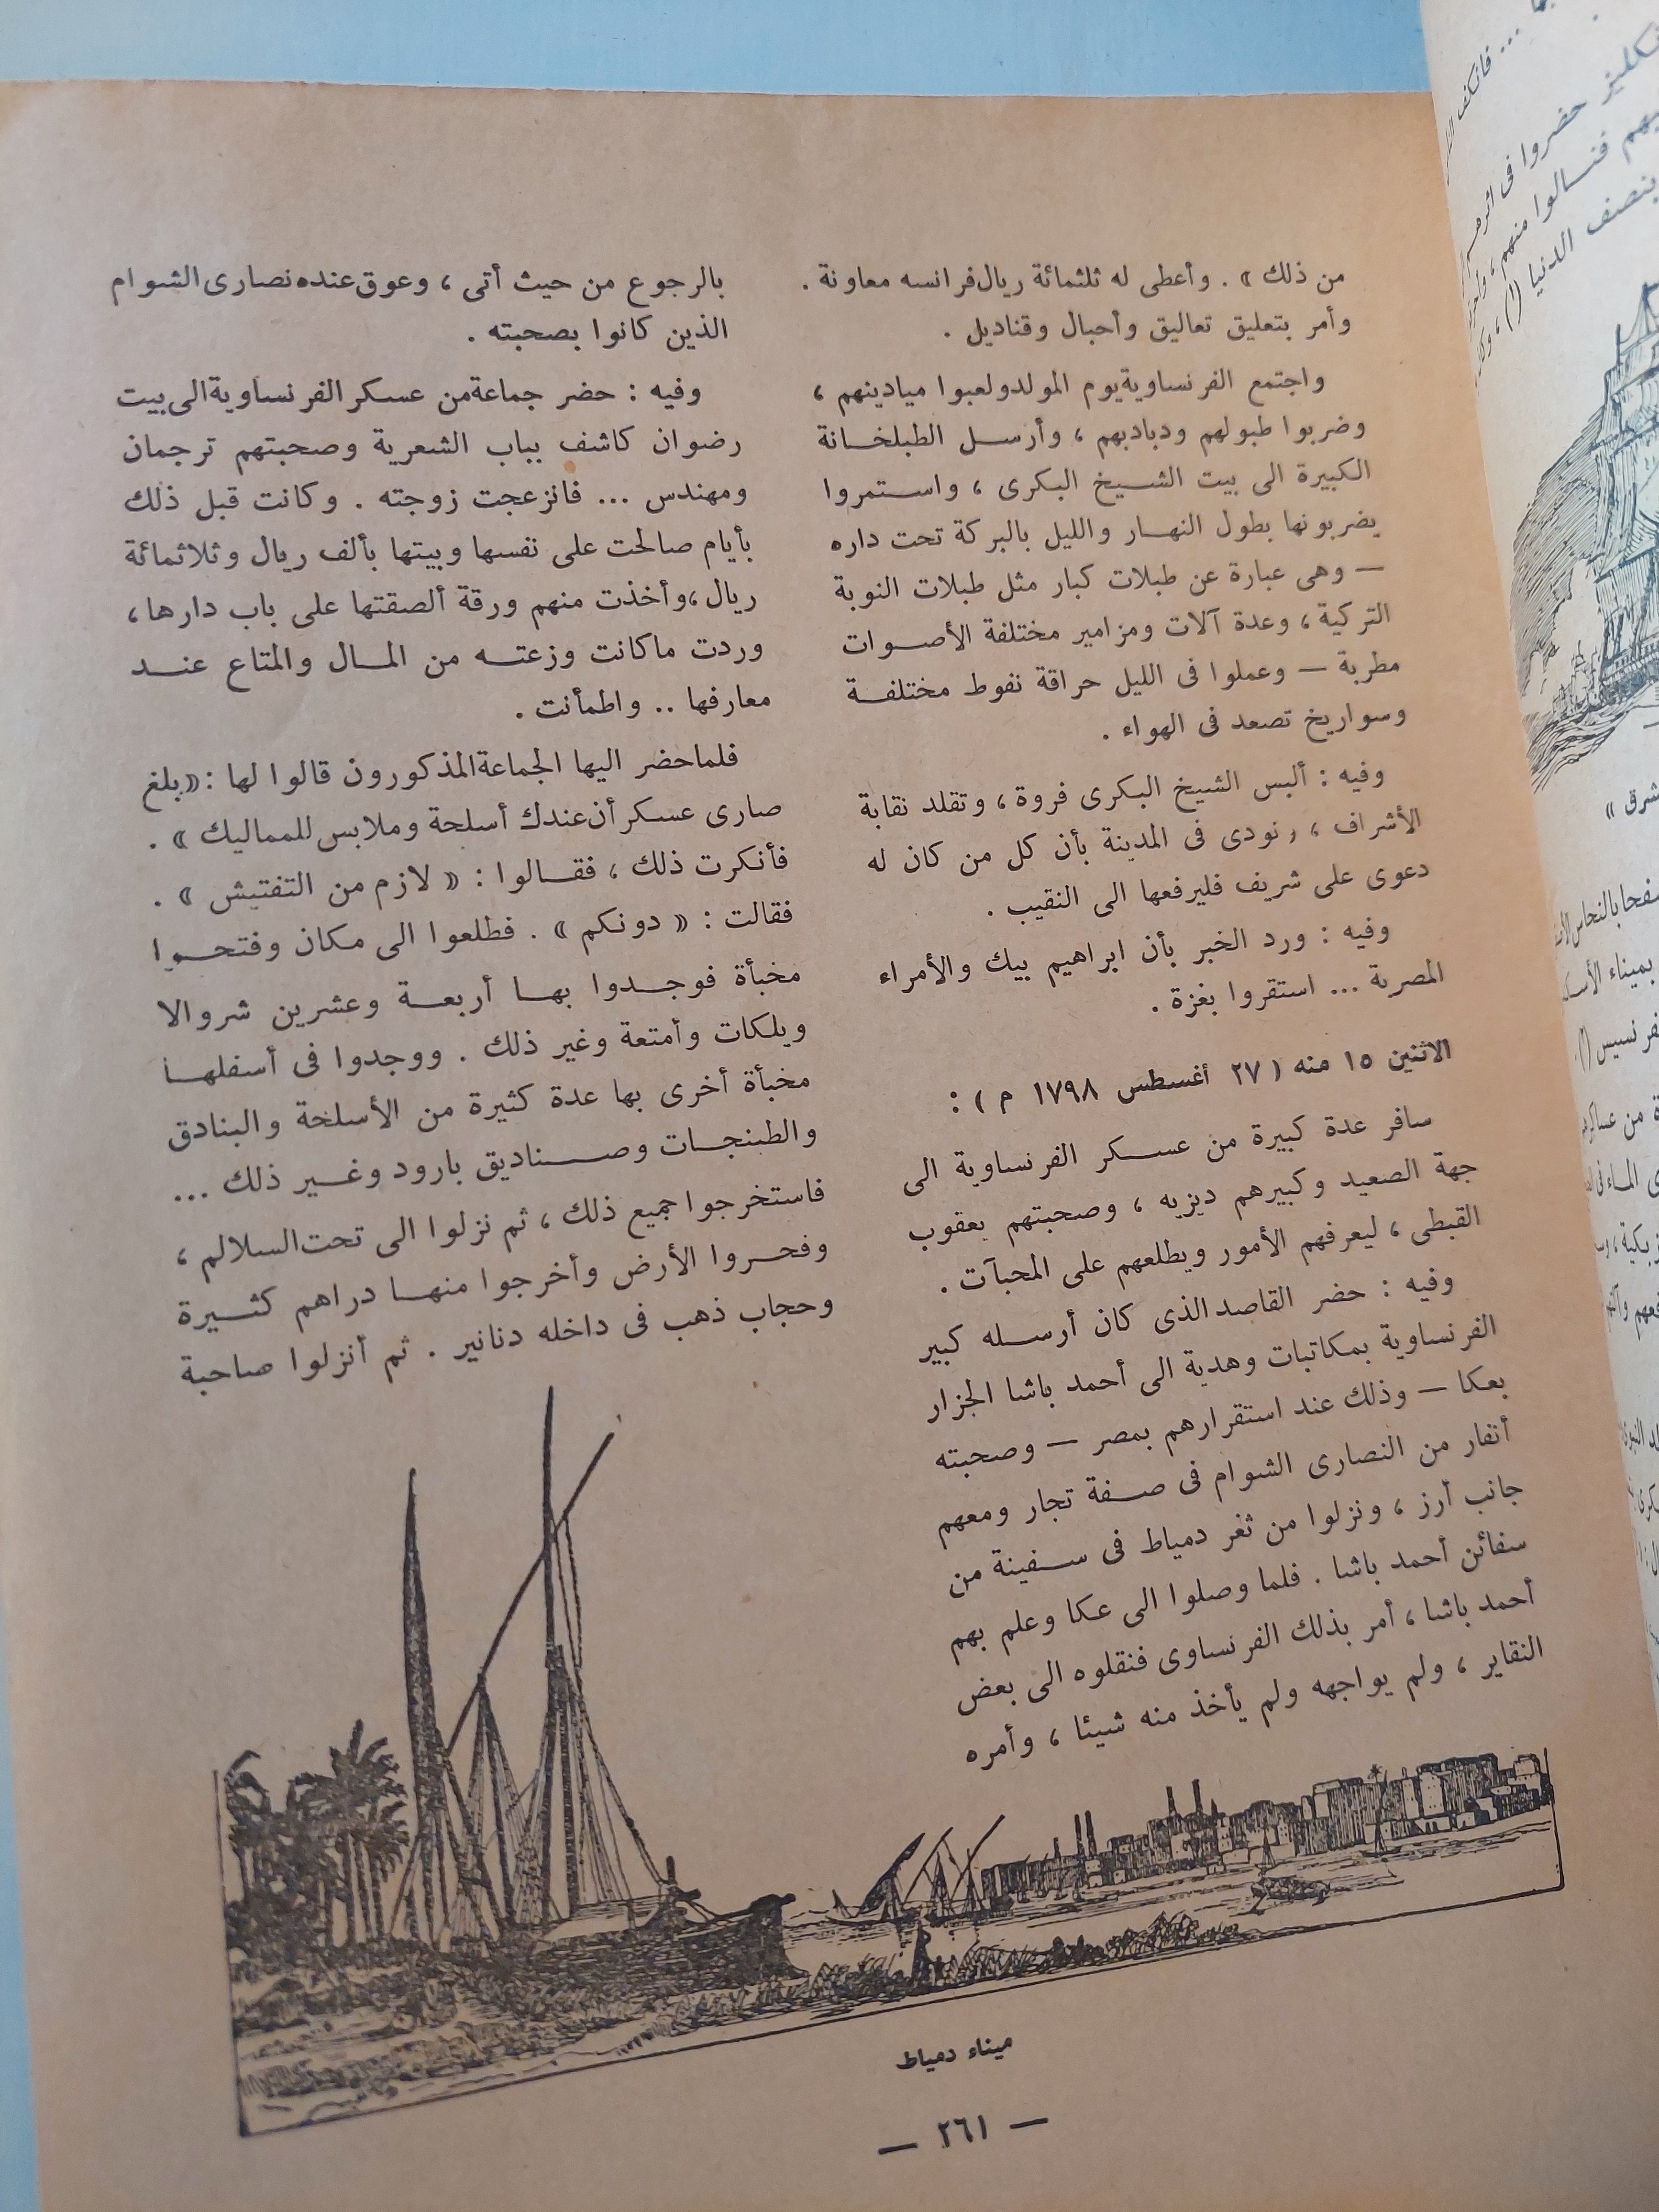 من ذلك » . وأعطى له ثلثمائة ريال فرانسه معاونة .
وأمر بتعليق تعاليق وأحبال وقناديل .
واجتمع الفرنساوية يوم المولد ولعبوا ميادينهم ،
وضربوا طبولهم ودبادبهم ، وأرسل الطبلخانة
الكبيرة الى بيت الشيخ البكرى ، واستمروا
يضربونها بطول النهار والليل بالبركة تحت داره
— وهى عبارة عن طبلات كبار مثل طبلات النوبة
التركية ، وعدة آلات ومزامير مختلفة الأصوات
مطربة — وعملوا فى الليل حراقة نفوط مختلفة
وسواريخ تصعد فى الهواء .
وفيه : ألبس الشيخ البكرى فروة ، وتقلد نقابة
الأشراف ، ونودى فى المدينة بأن كل من كان له
دعوى على شريف فليرفعها الى النقيب .
وفيه : ورد الخبر بأن ابراهيم بيك والأمراء
المصرية ... استقروا بغزة .
الاثنين ١٥ منه ( ٢٧ أغسطس ١٧٩٨ م ) :
سافر عدة كبيرة من عسكر الفرنساوية الى
جهة الصعيد وكبيرهم ديزيه ، وصحبتهم يعقوب
القبطى ، ليعرفهم الأمور ويطلعهم على المخبآت .
وفيه : حضر القاصد الذى كان أرسله كبير
الفرنساوية بمكاتبات وهدية الى أحمد باشا الجزار
بعكا — وذلك عند استقرارهم بمصر — وصحبته
أنفار من النصارى الشوام فى صفة تجار ومعهم
جانب أرز ، ونزلوا من ثغر دمياط فى سفينة من
سفائن أحمد باشا . فلما وصلوا الى عكا وعلم بهم
أحمد باشا ، أمر بذلك الفرنساوى فنقلوه الى بعض
النقاير ، ولم يواجهه ولم يأخذ منه شيئا ، وأمره
بالرجوع من حيث أتى ، وعوق عنده نصارى الشوام
الذين كانوا بصحبته .
وفيه : حضر جماعة من عسكر الفرنساوية الى بيت
رضوان كاشف بباب الشعرية وصحبتهم ترجمان
ومهندس ... فانزعجت زوجته . وكانت قبل ذلك
بأيام صالحت على نفسها وبيتها بألف ريال وثلاثمائة
ريال ، وأخذت منهم ورقة ألصقتها على باب دارها ،
وردت ما كانت وزعته من المال والمتاع عند
معارفها .. واطمأنت .
فلما حضر اليها الجماعة المذكورون قالوا لها : « بلغ
صارى عسكر أن عندك أسلحة وملابس للمماليك » .
فأنكرت ذلك ، فقالوا : « لازم من التفتيش » .
فقالت : « دونكم » . فطلعوا الى مكان وفتحوا
مخبأة فوجدوا بها أربعة وعشرين شروالا
ويلكات وأمتعة وغير ذلك . ووجدوا فى أسفلها
مخبأة أخرى بها عدة كثيرة من الأسلحة والبنادق
والطبنجات وصناديق بارود وغير ذلك ...
فاستخرجوا جميع ذلك ، ثم نزلوا الى تحت السلالم ،
وفحروا الأرض وأخرجوا منها دراهم كثيرة
وحجاب ذهب فى داخله دنانير . ثم أنزلوا صاحبة
ميناء دمياط
— ٢٦١ —
حضروا فى اثرهم
فنالوا منهم ،
بنصف الدنيا (١) ،
شرق »
بالنحاس
بميناء
من